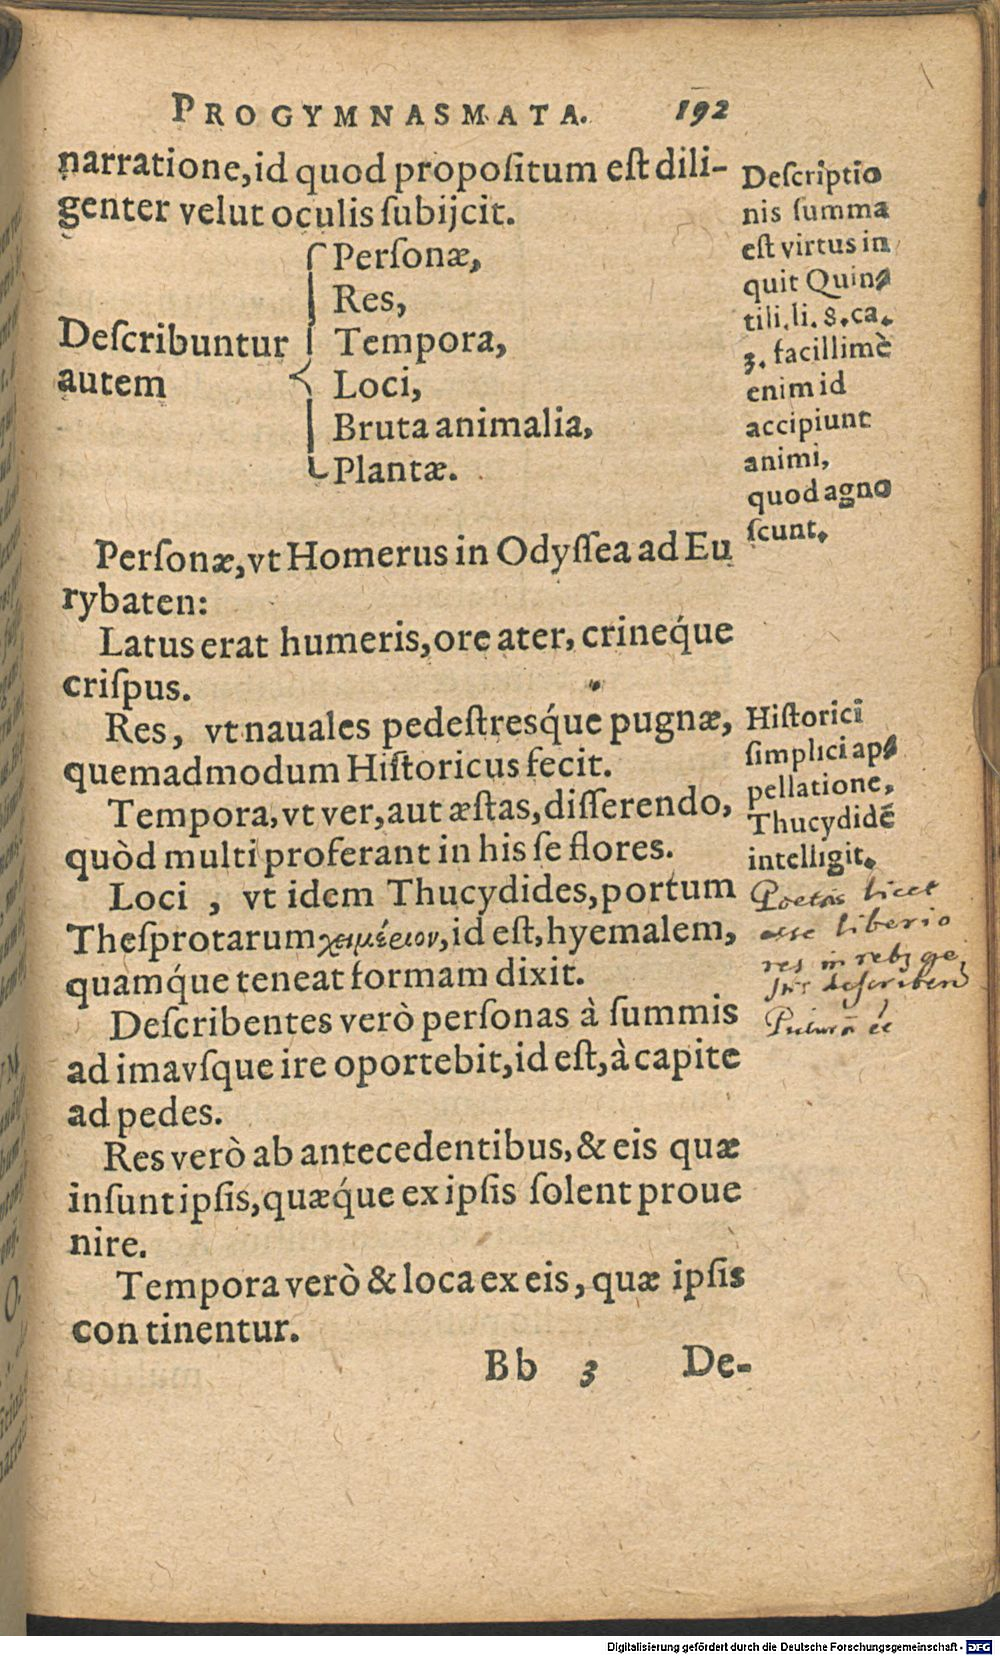 PROGYMNASMATA. 192
narratione, id quod propositum est dili-
genter velut oculis subijcit.
Describuntur
autem
Personæ,
Res,
Tempora,
Loci,
Bruta animalia,
Plantæ.
Descriptio
nis summa
est virtus in
quit Quin⸗
tili. li. 8. ca.
3. facillimè
enim id
accipiunt
animi,
quod agno
scunt.
Personæ, vt Homerus in Odyssea ad Eu
rybaten:
Latus erat humeris, ore ater, crineq́ue
crispus.
Res, vt nauales pedestresq́ue pugnæ,
quemadmodum Historicus fecit.
Tempora, vt ver, aut æstas, disserendo,
quòd multi proferant in his se flores.
Loci, vt idem Thucydides, portum
Thesprotarum χειμέειον, id est, hyemalem,
quamq́ue teneat formam dixit.
Historici
simplici ap⸗
pellatione,
Thucydidẽ
intelligit.
Poetas licet
esse liberio
res in rebꝫ ge
describen
Describentes verò personas à summis
ad imavsque ire oportebit, id est, à capite
ad pedes.
Res verò ab antecedentibus, & eis quæ
insunt ipsis, quæq́ue ex ipsis solent proue
nire.
Tempora verò & loca ex eis, quæ ipsis
con tinentur.
Bb 3 De-
Digitalisierung gefördert durch die Deutsche Forschungsgemeinschaft - DFG